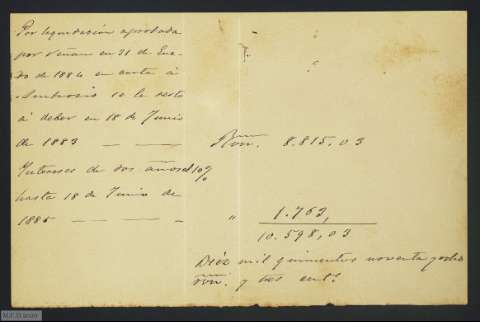 Por liquidación aprobada
por Veñan en 21 de Ene-
ro de 1884 en carta á
Ambrosio se le resta
á deber en 18 de Junio
de 1883 — — Rvn. 8.815,03
Intereses de dos años al 10%
hasta 18 de Junio de
1885 — — — " 1.763,
10.598,03
Diéz mil quinientos noventa y ocho
Rvn. y tres cents.